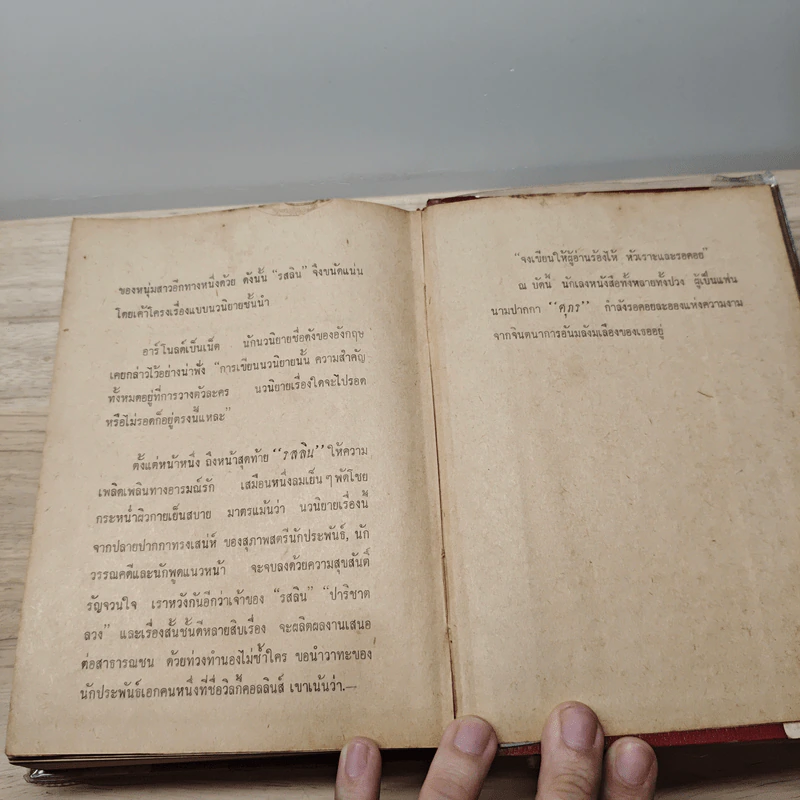 ของหนุ่มสาวอีกทางหนึ่งด้วย ดังนั้น “รสลิน” จึงขนัดแน่น
โดยเค้าโครงเรื่องแบบนวนิยายชั้นนำ
อาร์โนลด์เบ็นเน็ต นักนวนิยายชื่อดังของอังกฤษ
เคยกล่าวไว้อย่างน่าฟัง “การเขียนนวนิยายนั้น ความสำคัญ
ทั้งหมดอยู่ที่การวางตัวละคร นวนิยายเรื่องใดจะไปรอด
หรือไม่รอดก็อยู่ตรงนี้แหละ”
ตั้งแต่หน้าหนึ่ง ถึงหน้าสุดท้าย “รสลิน” ให้ความ
เพลิดเพลินทางอารมณ์รัก เสมือนหนึ่งลมเย็นๆ พัดโชย
กระหน่ำผิวกายเย็นสบาย มาตรแม้นว่า นวนิยายเรื่องนี้
จากปลายปากกาทรงเสน่ห์ ของสุภาพสตรีนักประพันธ์, นัก
วรรณคดีและนักพูดแนวหน้า จะจบลงด้วยความสุขสันติ์
รัญจวนใจ เราหวังกันอีกว่าเจ้าของ “รสลิน” “ปาริชาต
ลวง” และเรื่องสั้นชั้นดีหลายสิบเรื่อง จะผลิตผลงานเสนอ
ต่อสาธารณชน ด้วยท่วงทำนองไม่ซ้ำใคร ขอนำวาทะของ
นักประพันธ์เอกคนหนึ่งที่ชื่อวิลกี้คอลลินส์ เขาเน้นว่า.—
“จงเขียนให้ผู้อ่านร้องไห้ หัวเราะและรอคอย”
ณ บัดนี้ นักเลงหนังสือทั้งหลายทั้งปวง ผู้เป็นแฟน
นามปากกา “ศุภร” กำลังรอคอยละอองแห่งความงาม
จากจินตนาการอันมลังมเลืองของเธออยู่